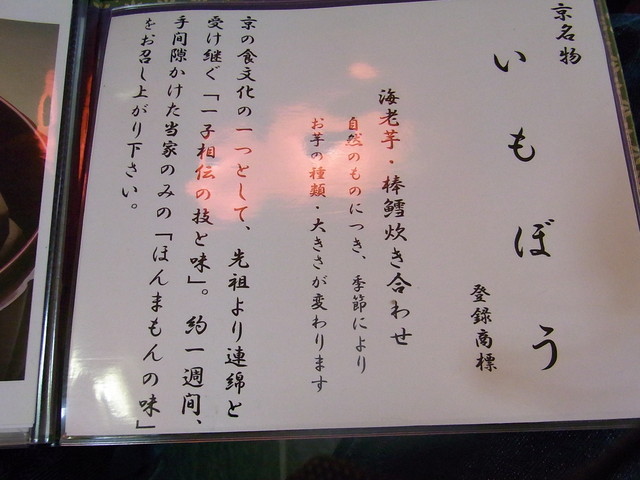 京名物
いもぼう
登録商標
海老芋・棒鱈炊き合わせ
自然のものにつき、季節により
お芋の種類・大きさが変わります
京の食文化の一つとして、先祖より連綿と
受け継ぐ「一子相伝の技と味」。約一週間、
手間隙かけた当家のみの「ほんまもんの味」
をお召し上がり下さい。